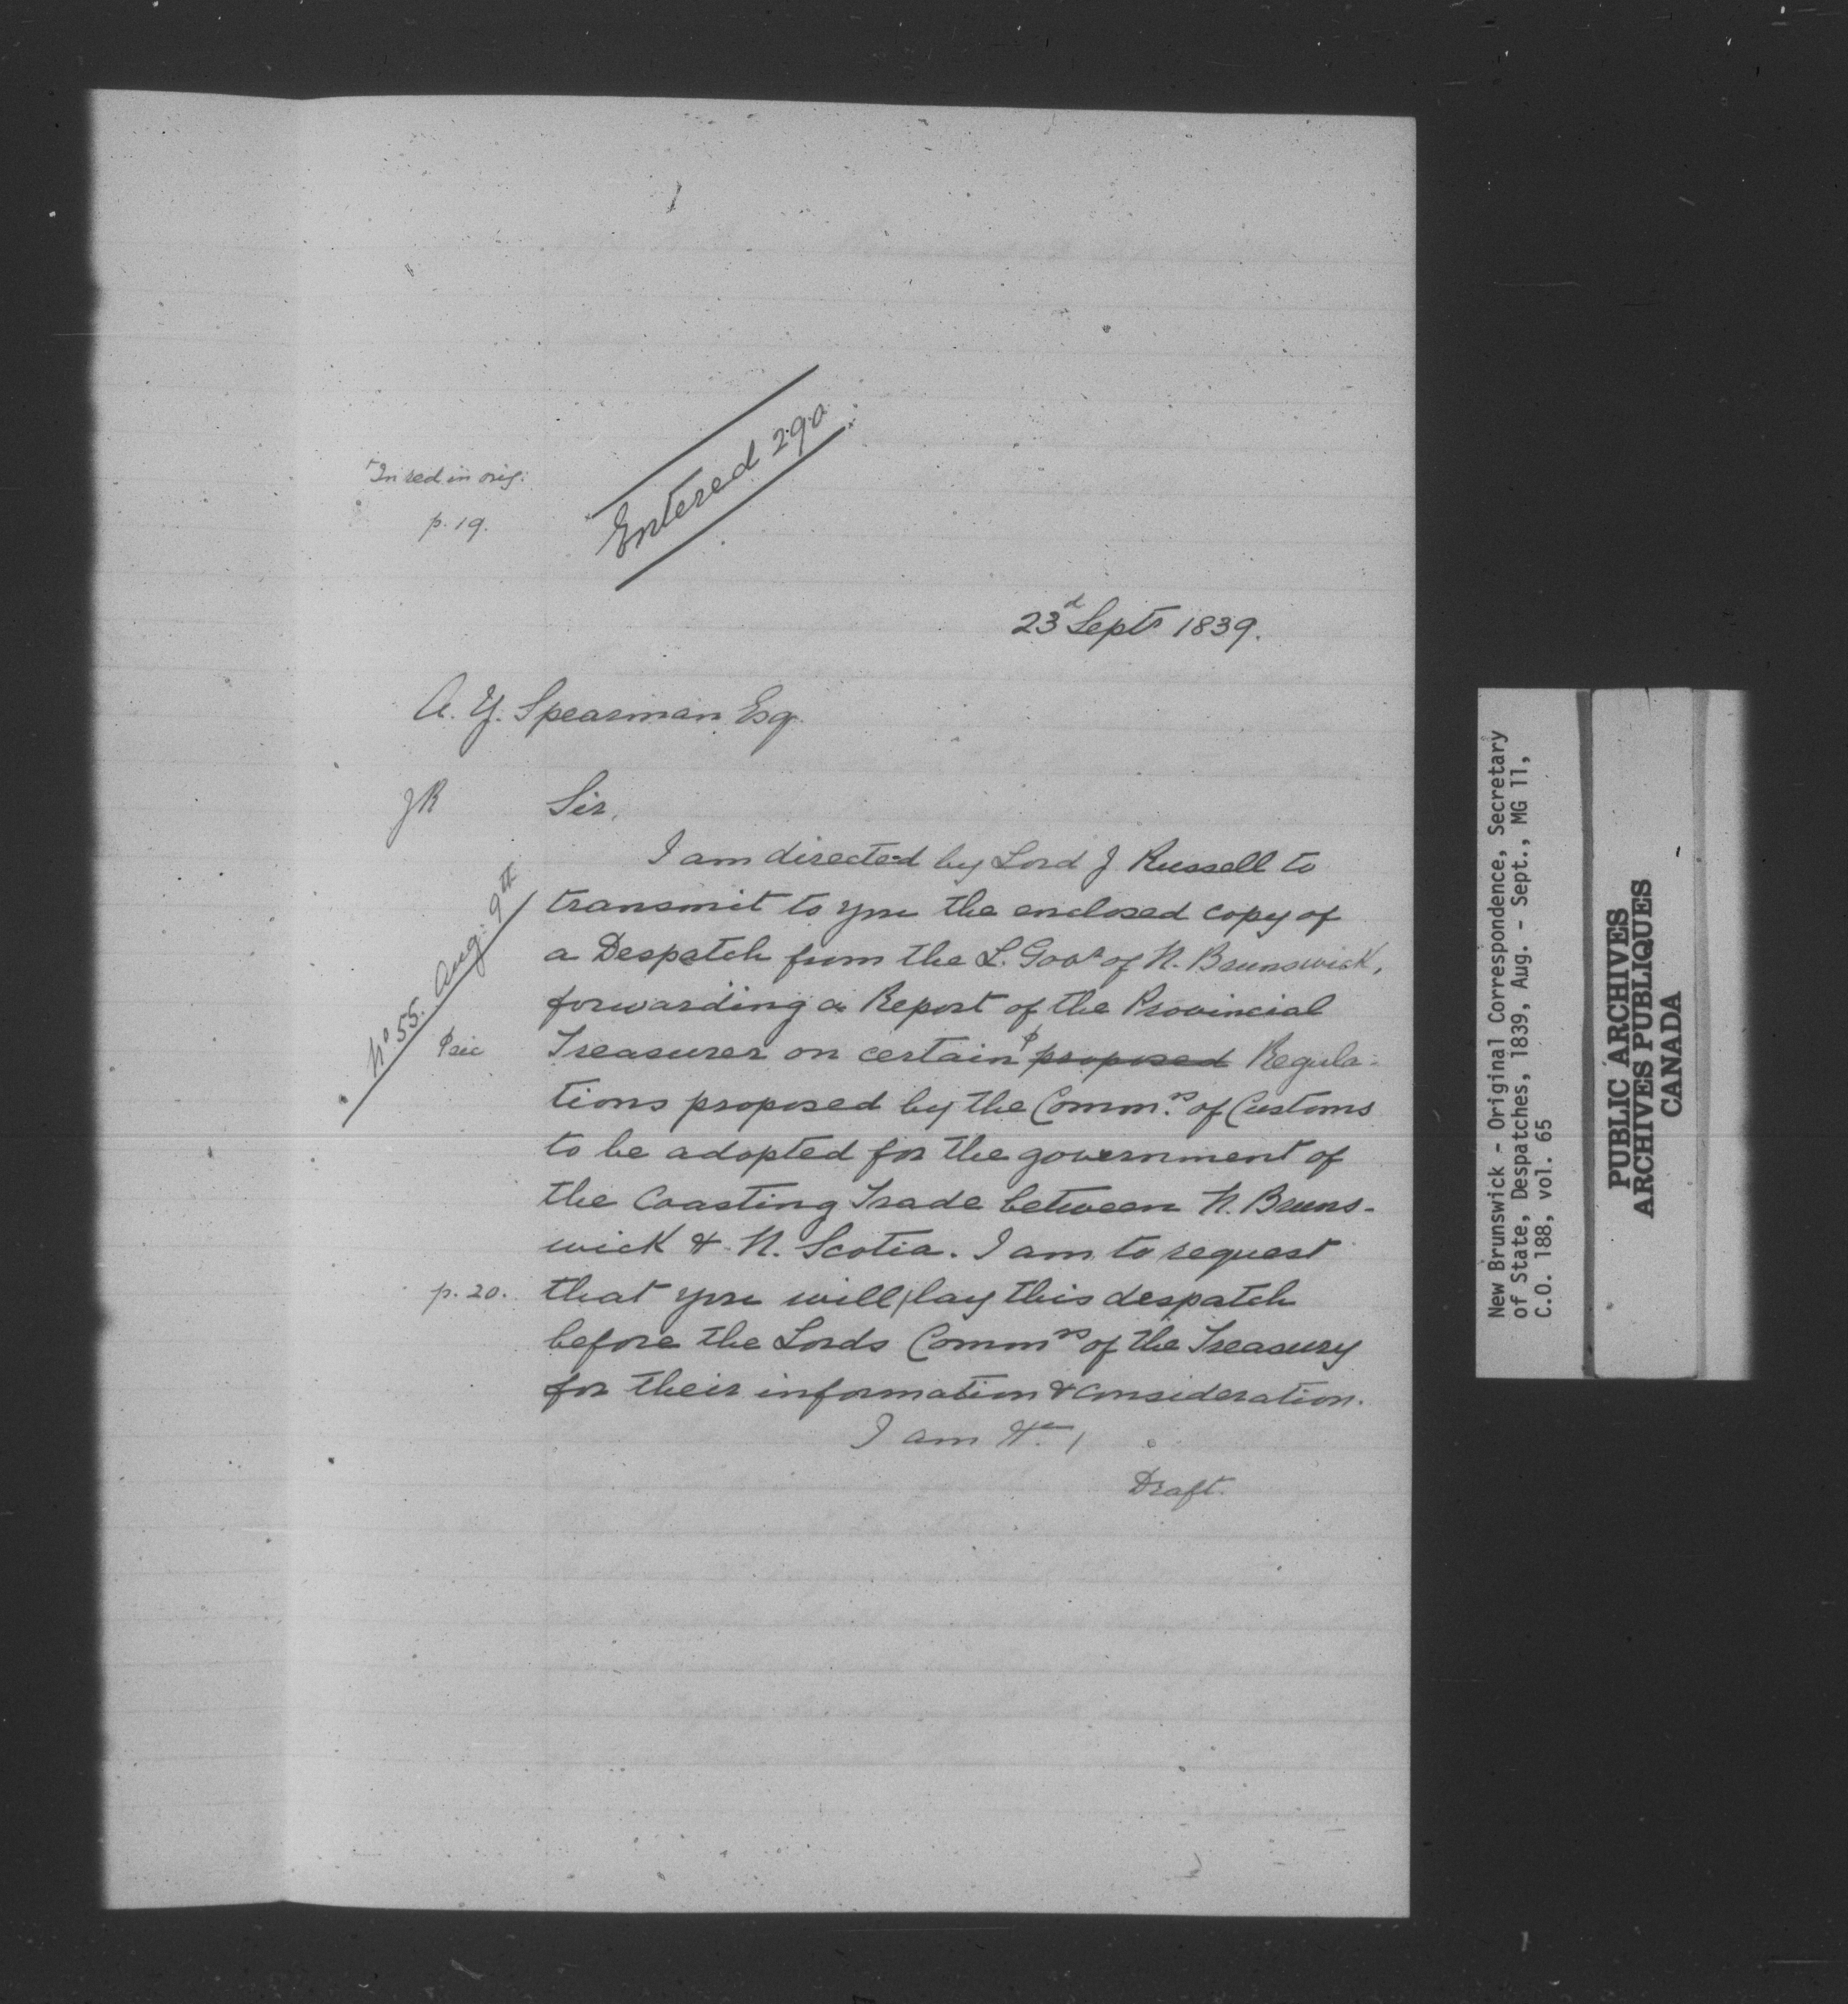 *In red in orig:
p. 19.
Entered 290
23d Septr 1839.
A. Y. Spearman Esq.
JR
Sir,
I am directed by Lord J Russell to
transmit to you the enclosed copy of
No 55. Aug: 9th
a Despatch from the L. Govr of N. Brunswick,
forwarding a Report of the Provincial
φ sic
Treasurer on certain φ proposed Regula-
tions proposed by the Commrs of Customs
to be adopted for the government of
the Coasting Trade between N. Bruns-
wick & N. Scotia. I am to request
p. 20.
that you will / lay this despatch
before the Lords Commrs of the Treasury
for their information & consideration.
I am &c /
Draft.
New Brunswick - Original Correspondence, Secretary
of State, Despatches, 1839, Aug. - Sept., MG 11,
C.O. 188, vol. 65
PUBLIC ARCHIVES
ARCHIVES PUBLIQUES
CANADA